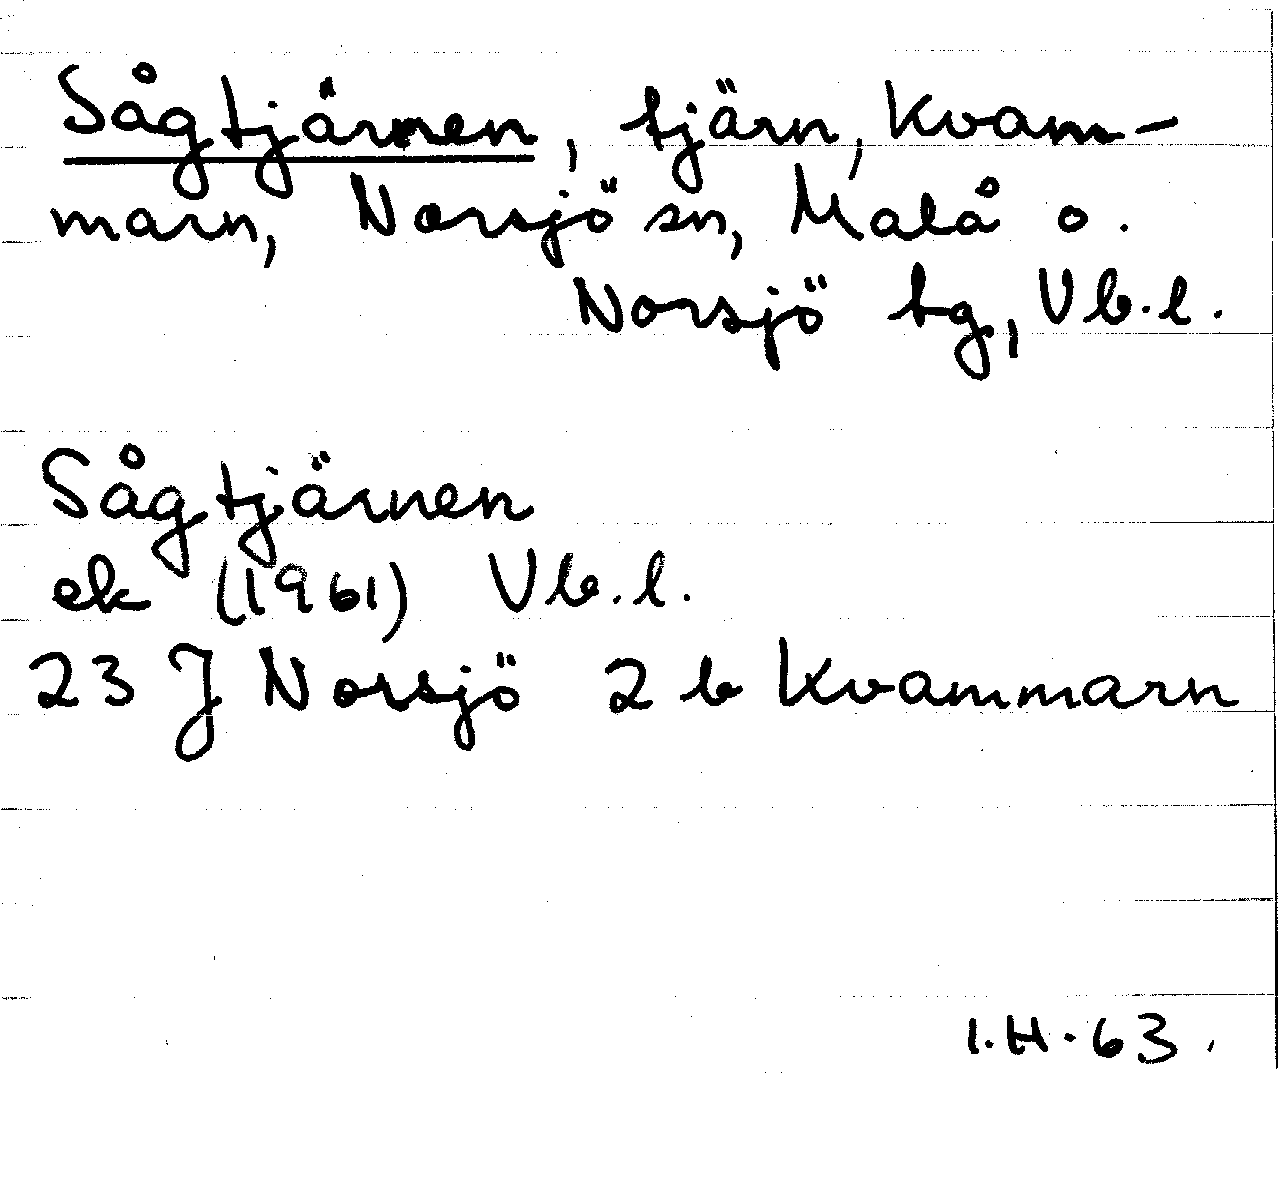 Sågtjärnen, tjärn, Kvam-
marn, Norsjö sn, Malå o.
Norsjö tg, Vb.l.
Sågtjärnen
ek (1961) Vb.l.
23 J Norsjö 2 b Kvammarn
I.H.63.